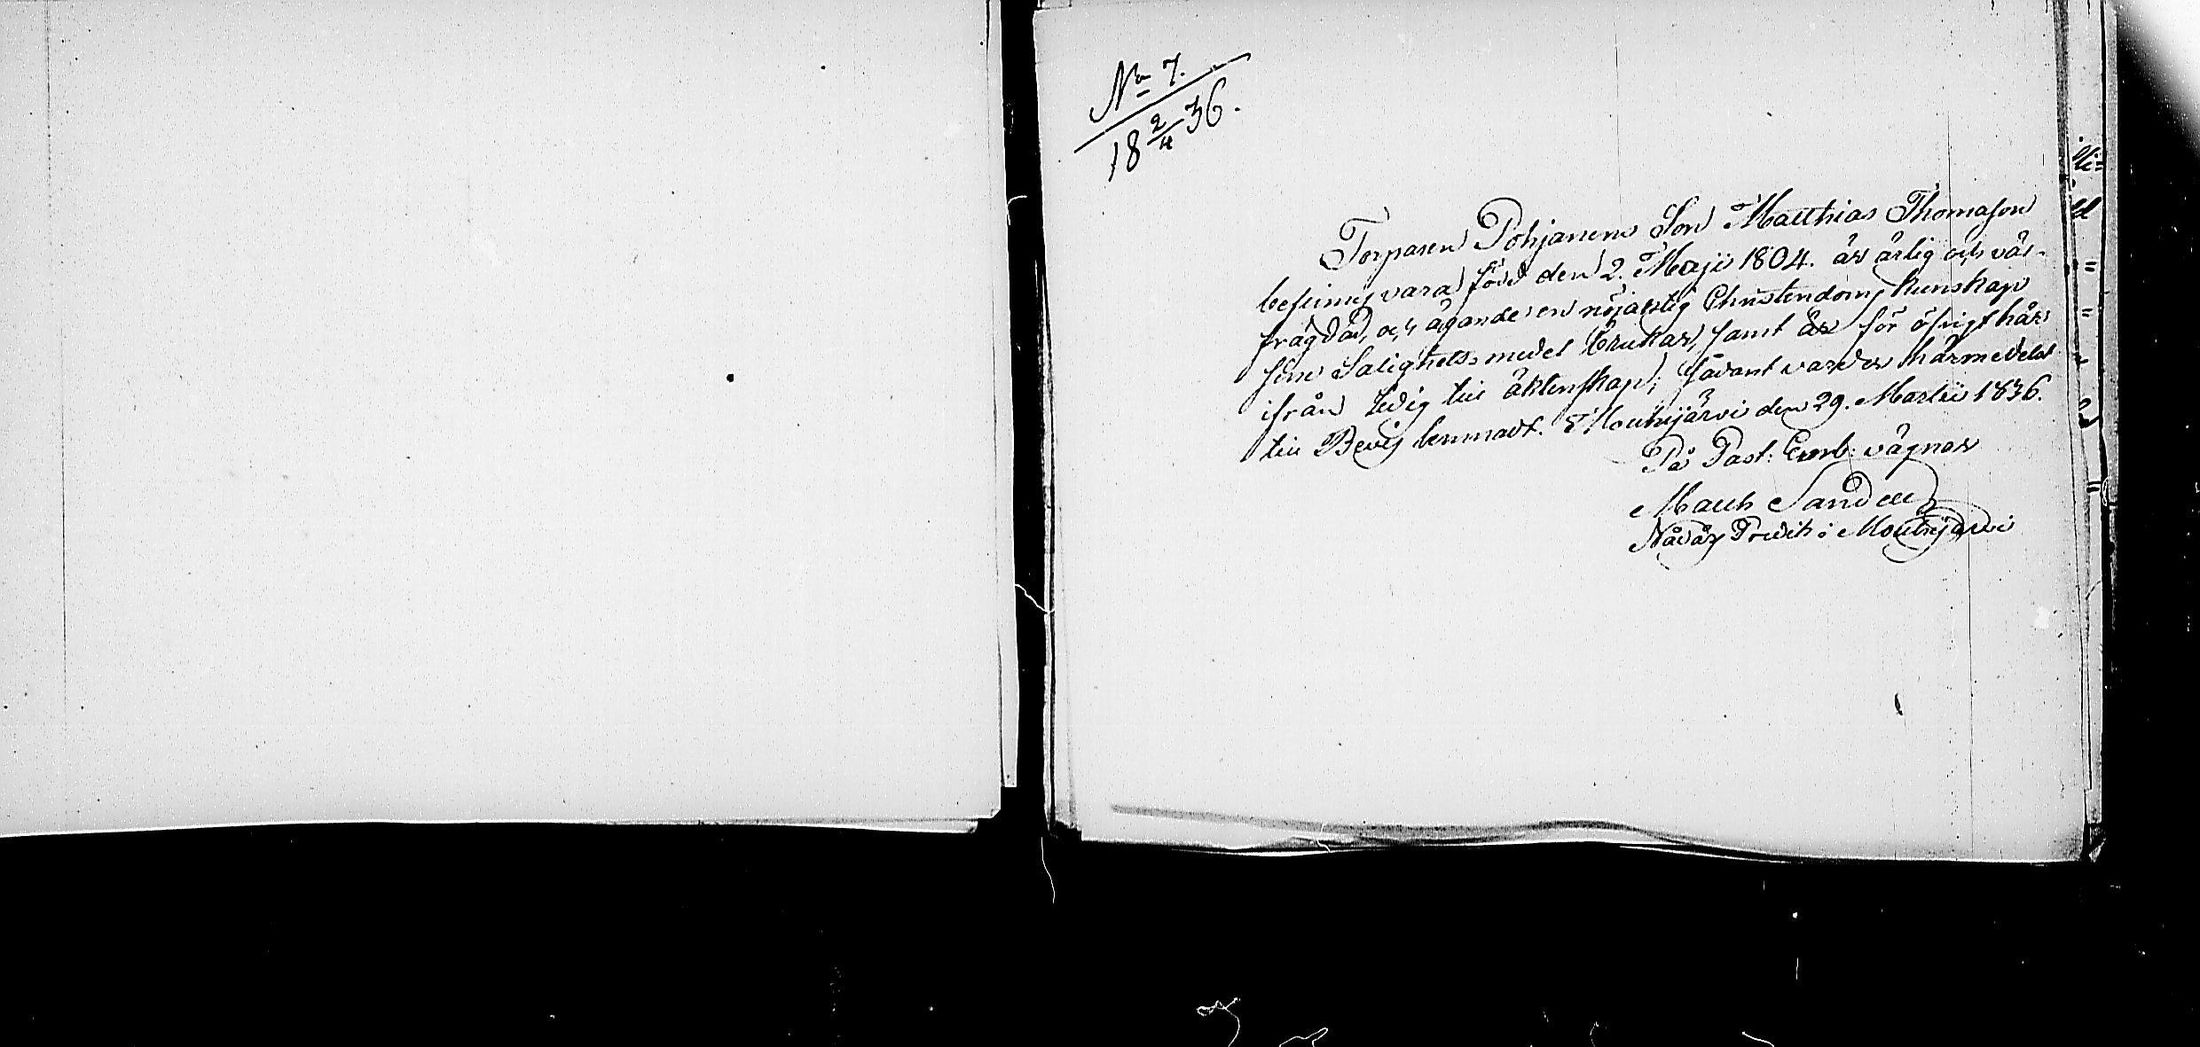 No 7.
18 2/4 36.
Torparen Pohjanens Son Matthias Thomason
befinnes vara född den 2. Maji 1804. är ärlig och väl-
frägdad, och ägande en nöjaktig Christendoms kunskap
sine Salighets-medel brukar, samt är för öfrigt här
ifrån ledig till äktenskap; sådant varder härmedelst
till Bevis lemnadt. Mouhijärvi den 29. Martii 1836.
På Past: Emb: vägnar
Math Sandell
Nådår Predik: i Mouhijärvi